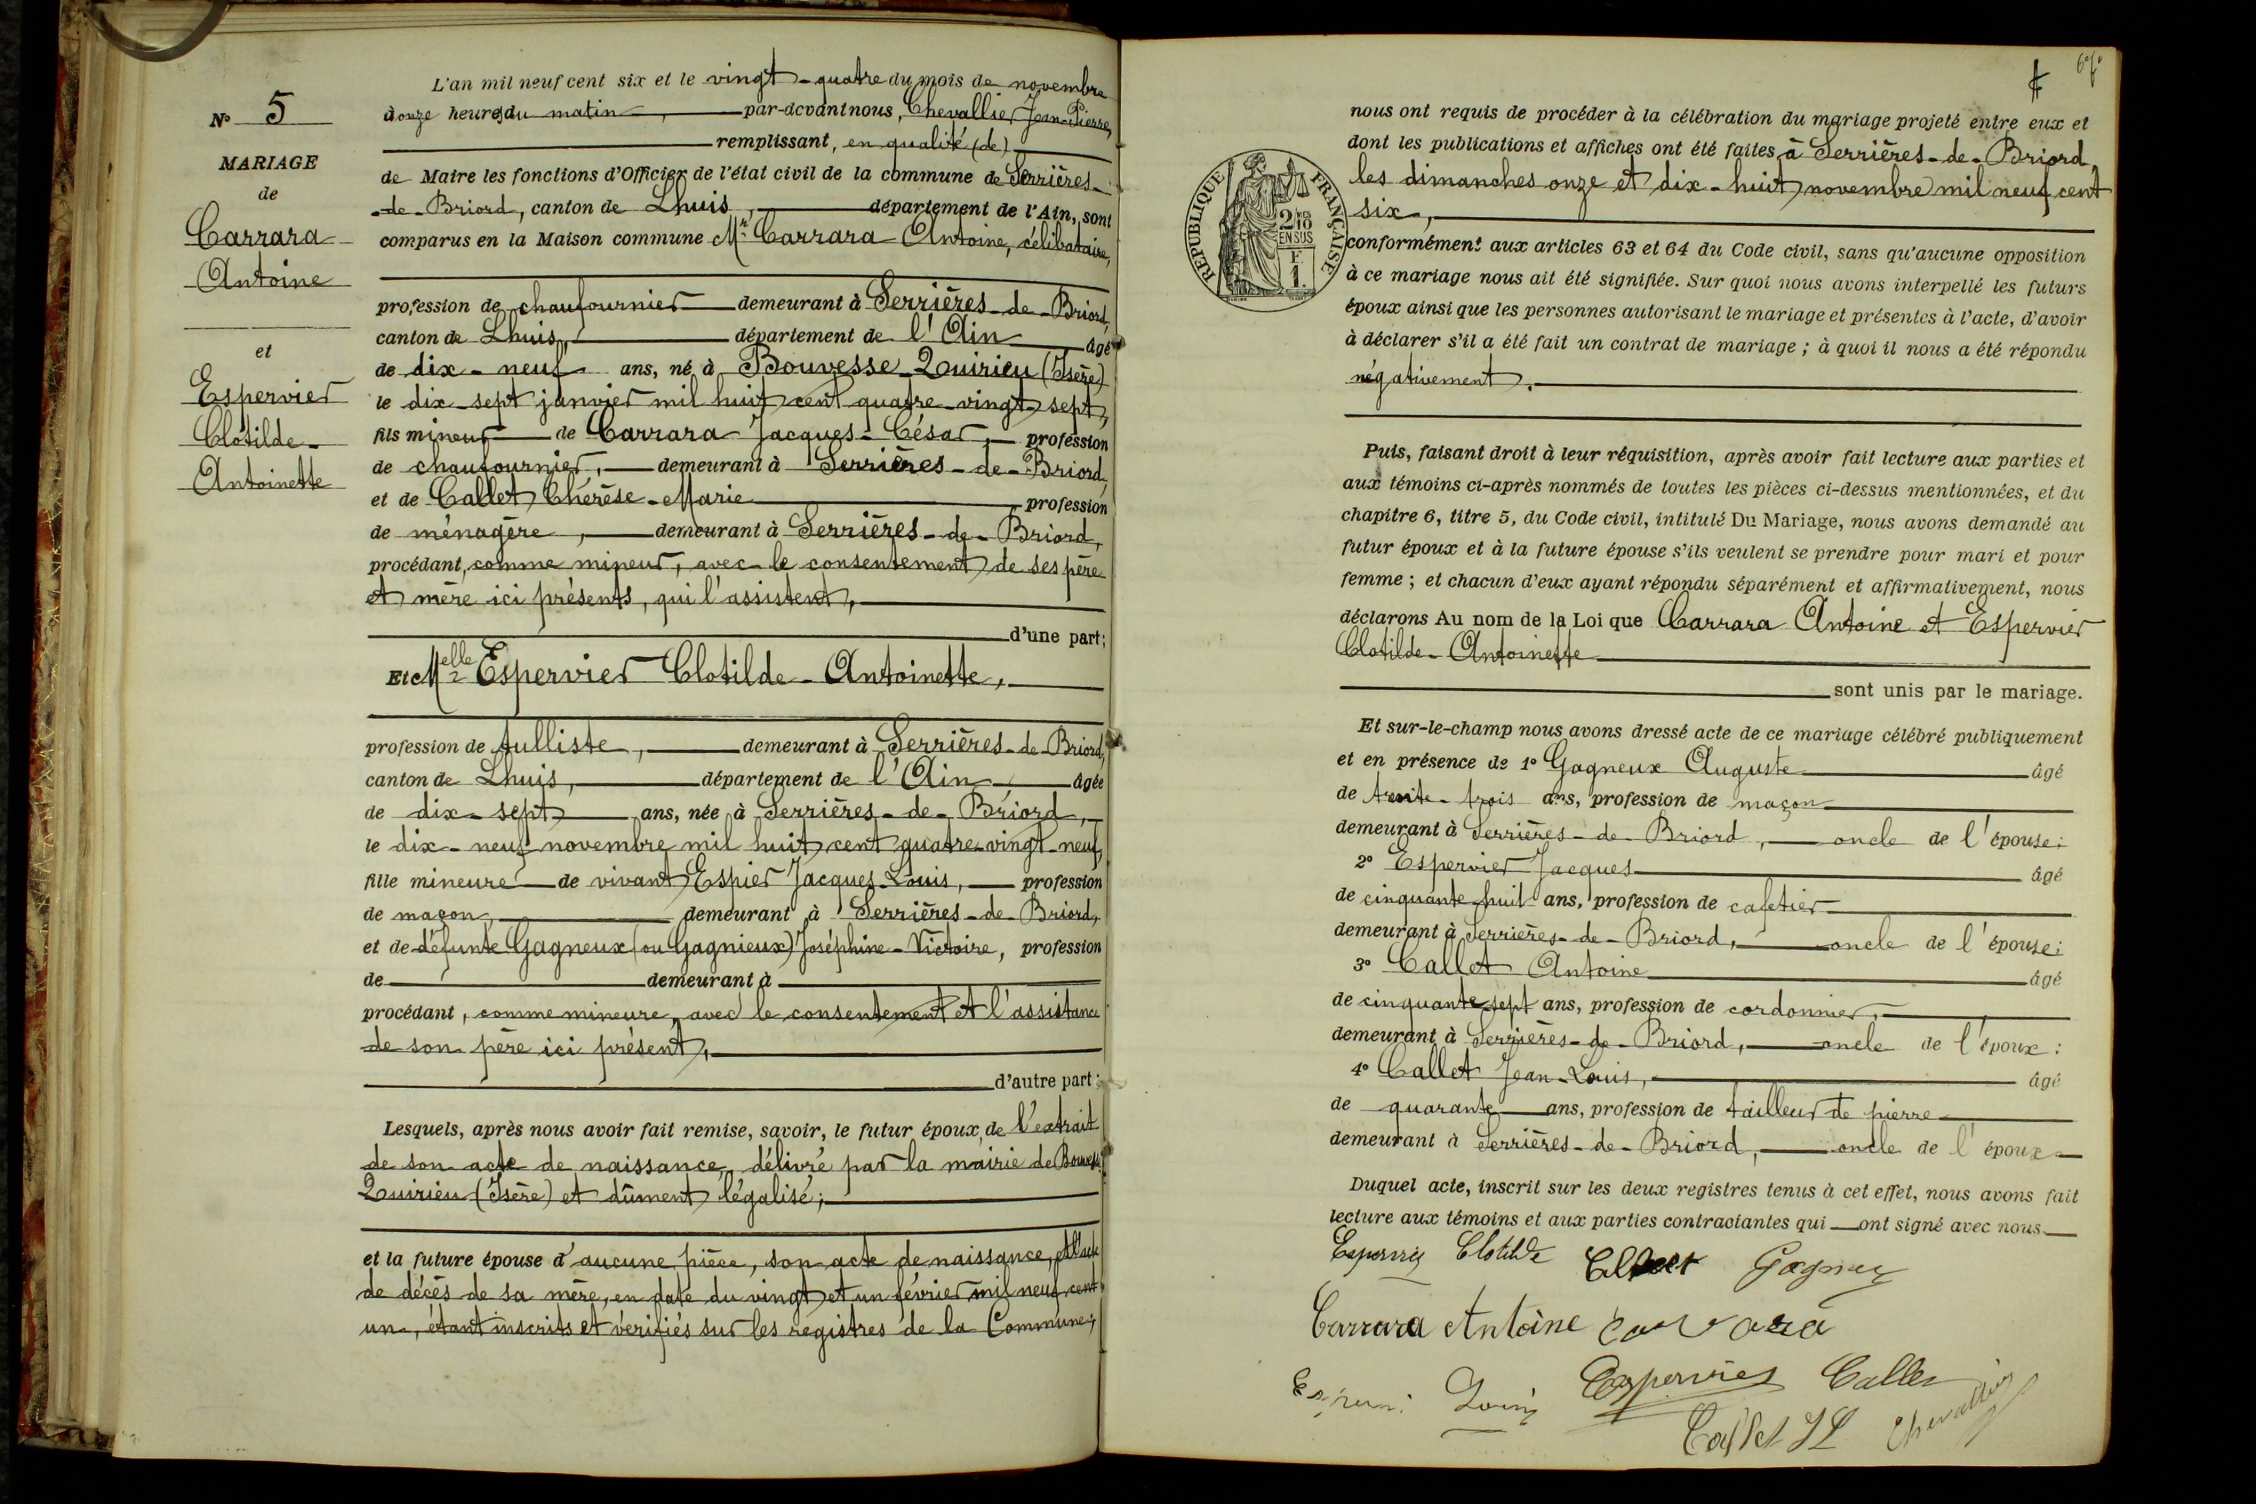 N° 5
MARIAGE
de
Carrara
Antoine
et
Espervier
Clotilde-
Antoinette
L'an mil neuf cent six et le vingt-quatre du mois de novembre
à onze heures du matin, par-devant nous, Chevallier Jean-Pierre,
remplissant, en qualité (de)
de Maire les fonctions d'Officier de l'état civil de la commune de Serrières-
-de-Briord, canton de Lhuis, département de l'Ain, sont
comparus en la Maison commune Mr Carrara Antoine, célibataire,
profession de chaufournier demeurant à Serrières-de-Briord,
canton de Lhuis, département de l'Ain âgé
de dix-neuf ans, né à Bouvesse-Quirieu (Isère)
le dix-sept janvier mil huit cent quatre-vingt-sept,
fils mineur de Carrara Jacques-César, profession
de chaufournier, demeurant à Serrières-de-Briord,
et de Callet Thérèse-Marie profession
de ménagère, demeurant à Serrières-de-Briord,
procédant, comme mineur, avec le consentement de ses père
et mère ici présents, qui l'assistent,
d'une part;
Et Melle Espervier Clotilde-Antoinette,
profession de tulliste, demeurant à Serrières-de-Briord,
canton de Lhuis, département de l'Ain, âgée
de dix-sept ans, née à Serrières-de-Briord,
le dix-neuf novembre mil huit cent quatre-vingt-neuf,
fille mineure de vivant Espier Jacques-Louis, profession
de maçon, demeurant à Serrières-de-Briord,
et de défunte Gagneux (ou Gagnieux) Joséphine-Victoire, profession
de demeurant à
procédant, comme mineure, avec le consentement et l'assistance
de son père ici présent,
d'autre part;
Lesquels, après nous avoir fait remise, savoir, le futur époux, de l'extrait
de son acte de naissance, délivré par la mairie de Bouvesse
Quirieu (Isère) et dûment légalisé;
et la future épouse d'aucune pièce, son acte de naissance, et l'acte
de décès de sa mère, en date du vingt et un février mil neuf cent
un, étant inscrits et vérifiés sur les registres de la Commune,
nous ont requis de procéder à la célébration du mariage projeté entre eux et
dont les publications et affiches ont été faites à Serrières-de-Briord,
les dimanches onze et dix-huit novembre mil neuf cent
six,
RÉPUBLIQUE FRANÇAISE
2/10
EN SUS
F.
1.
conformément aux articles 63 et 64 du Code civil, sans qu'aucune opposition
à ce mariage nous ait été signifiée. Sur quoi nous avons interpellé les futurs
époux ainsi que les personnes autorisant le mariage et présentes à l'acte, d'avoir
à déclarer s'il a été fait un contrat de mariage; à quoi il nous a été répondu
négativement.
Puis, faisant droit à leur réquisition, après avoir fait lecture aux parties et
aux témoins ci-après nommés de toutes les pièces ci-dessus mentionnées, et du
chapitre 6, titre 5, du Code civil, intitulé Du Mariage, nous avons demandé au
futur époux et à la future épouse s'ils veulent se prendre pour mari et pour
femme; et chacun d'eux ayant répondu séparément et affirmativement, nous
déclarons Au nom de la Loi que Carrara Antoine et Espervier
Clotilde-Antoinette
sont unis par le mariage.
Et sur-le-champ nous avons dressé acte de ce mariage célébré publiquement
et en présence de 1° Gagneux Auguste âgé
de trente-trois ans, profession de maçon
demeurant à Serrières-de-Briord, oncle de l'épouse;
2° Espervier Jacques âgé
de cinquante-huit ans, profession de cafetier
demeurant à Serrières-de-Briord, oncle de l'épouse;
3° Callet Antoine âgé
de cinquante-sept ans, profession de cordonnier,
demeurant à Serrières-de-Briord, oncle de l'époux;
4° Callet Jean-Louis, âgé
de quarante ans, profession de tailleur de pierre
demeurant à Serrières-de-Briord, oncle de l'époux
Duquel acte, inscrit sur les deux registres tenus à cet effet, nous avons fait
lecture aux témoins et aux parties contractantes qui ont signé avec nous
Clotilde
Carrara Antoine Carrara
Callet J L Chevallier